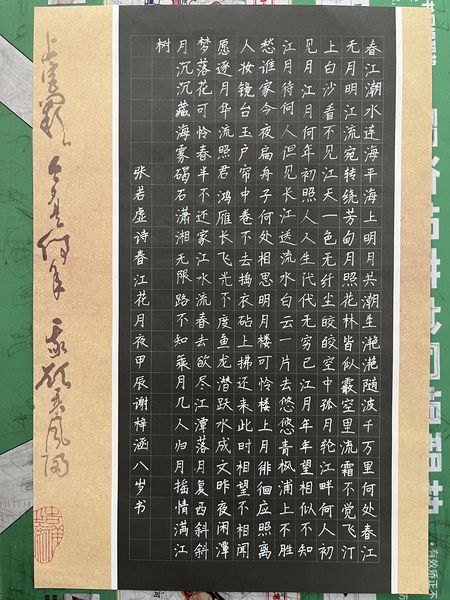 春江潮水连海平海上明月共潮生滟滟随波千万里何处春江
无月明江流宛转绕芳甸月照花林皆似霰空里流霜不觉飞汀
上白沙看不见江天一色无纤尘皎皎空中孤月轮江畔何人初
见月江月何年初照人人生代代无穷已江月年年望相似不知
江月待何人但见长江送流水白云一片去悠悠青枫浦上不胜
愁谁家今夜扁舟子何处相思明月楼可怜楼上月徘徊应照离
人妆镜台玉户帘中卷不去捣衣砧上拂还来此时相望不相闻
愿逐月华流照君鸿雁长飞光不度鱼龙潜跃水成文昨夜闲潭
梦落花可怜春半不还家江水流春去欲尽江潭落月复西斜斜
月沉沉藏海雾碣石潇湘无限路不知乘月几人归月摇情满江
树
张若虚诗春江花月夜甲辰谢梓涵八岁书
上宫阙今夕是何年我欲乘风归
有效矫正不